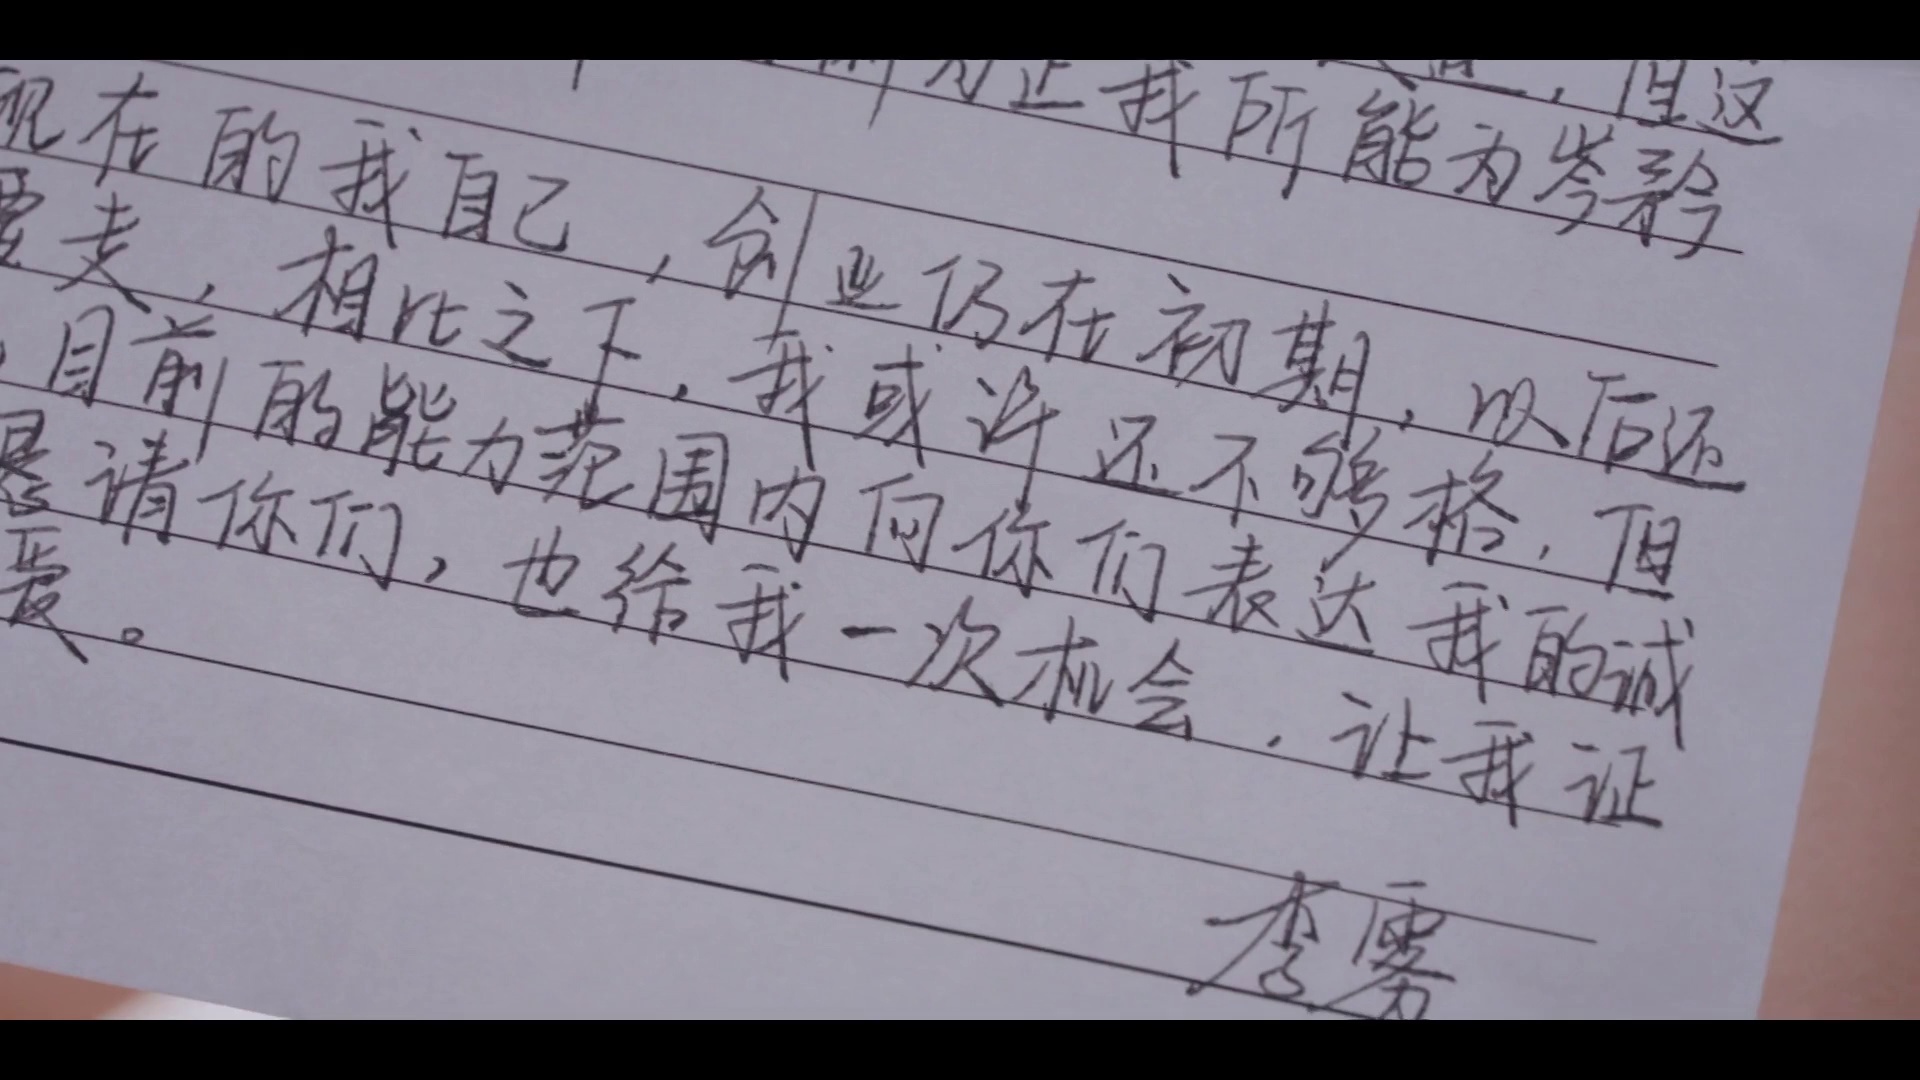 ，但这
前为止我所能为岑矜
现在的我自己，创业仍在初期，以后还
要走，相比之下，我或许还不够格，但
，目前的能力范围内向你们表达我的诚
恳请你们，也给我一次机会，让我证
爱。
李雾